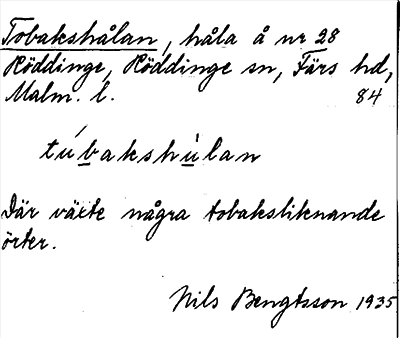 Tobakshålan, håla å nr 28
Röddinge, Röddinge sn, Färs hd,
Malm. l. 84
túbakshùlan
Där växte några tobaksliknande
örter.
Nils Bengtsson 1935